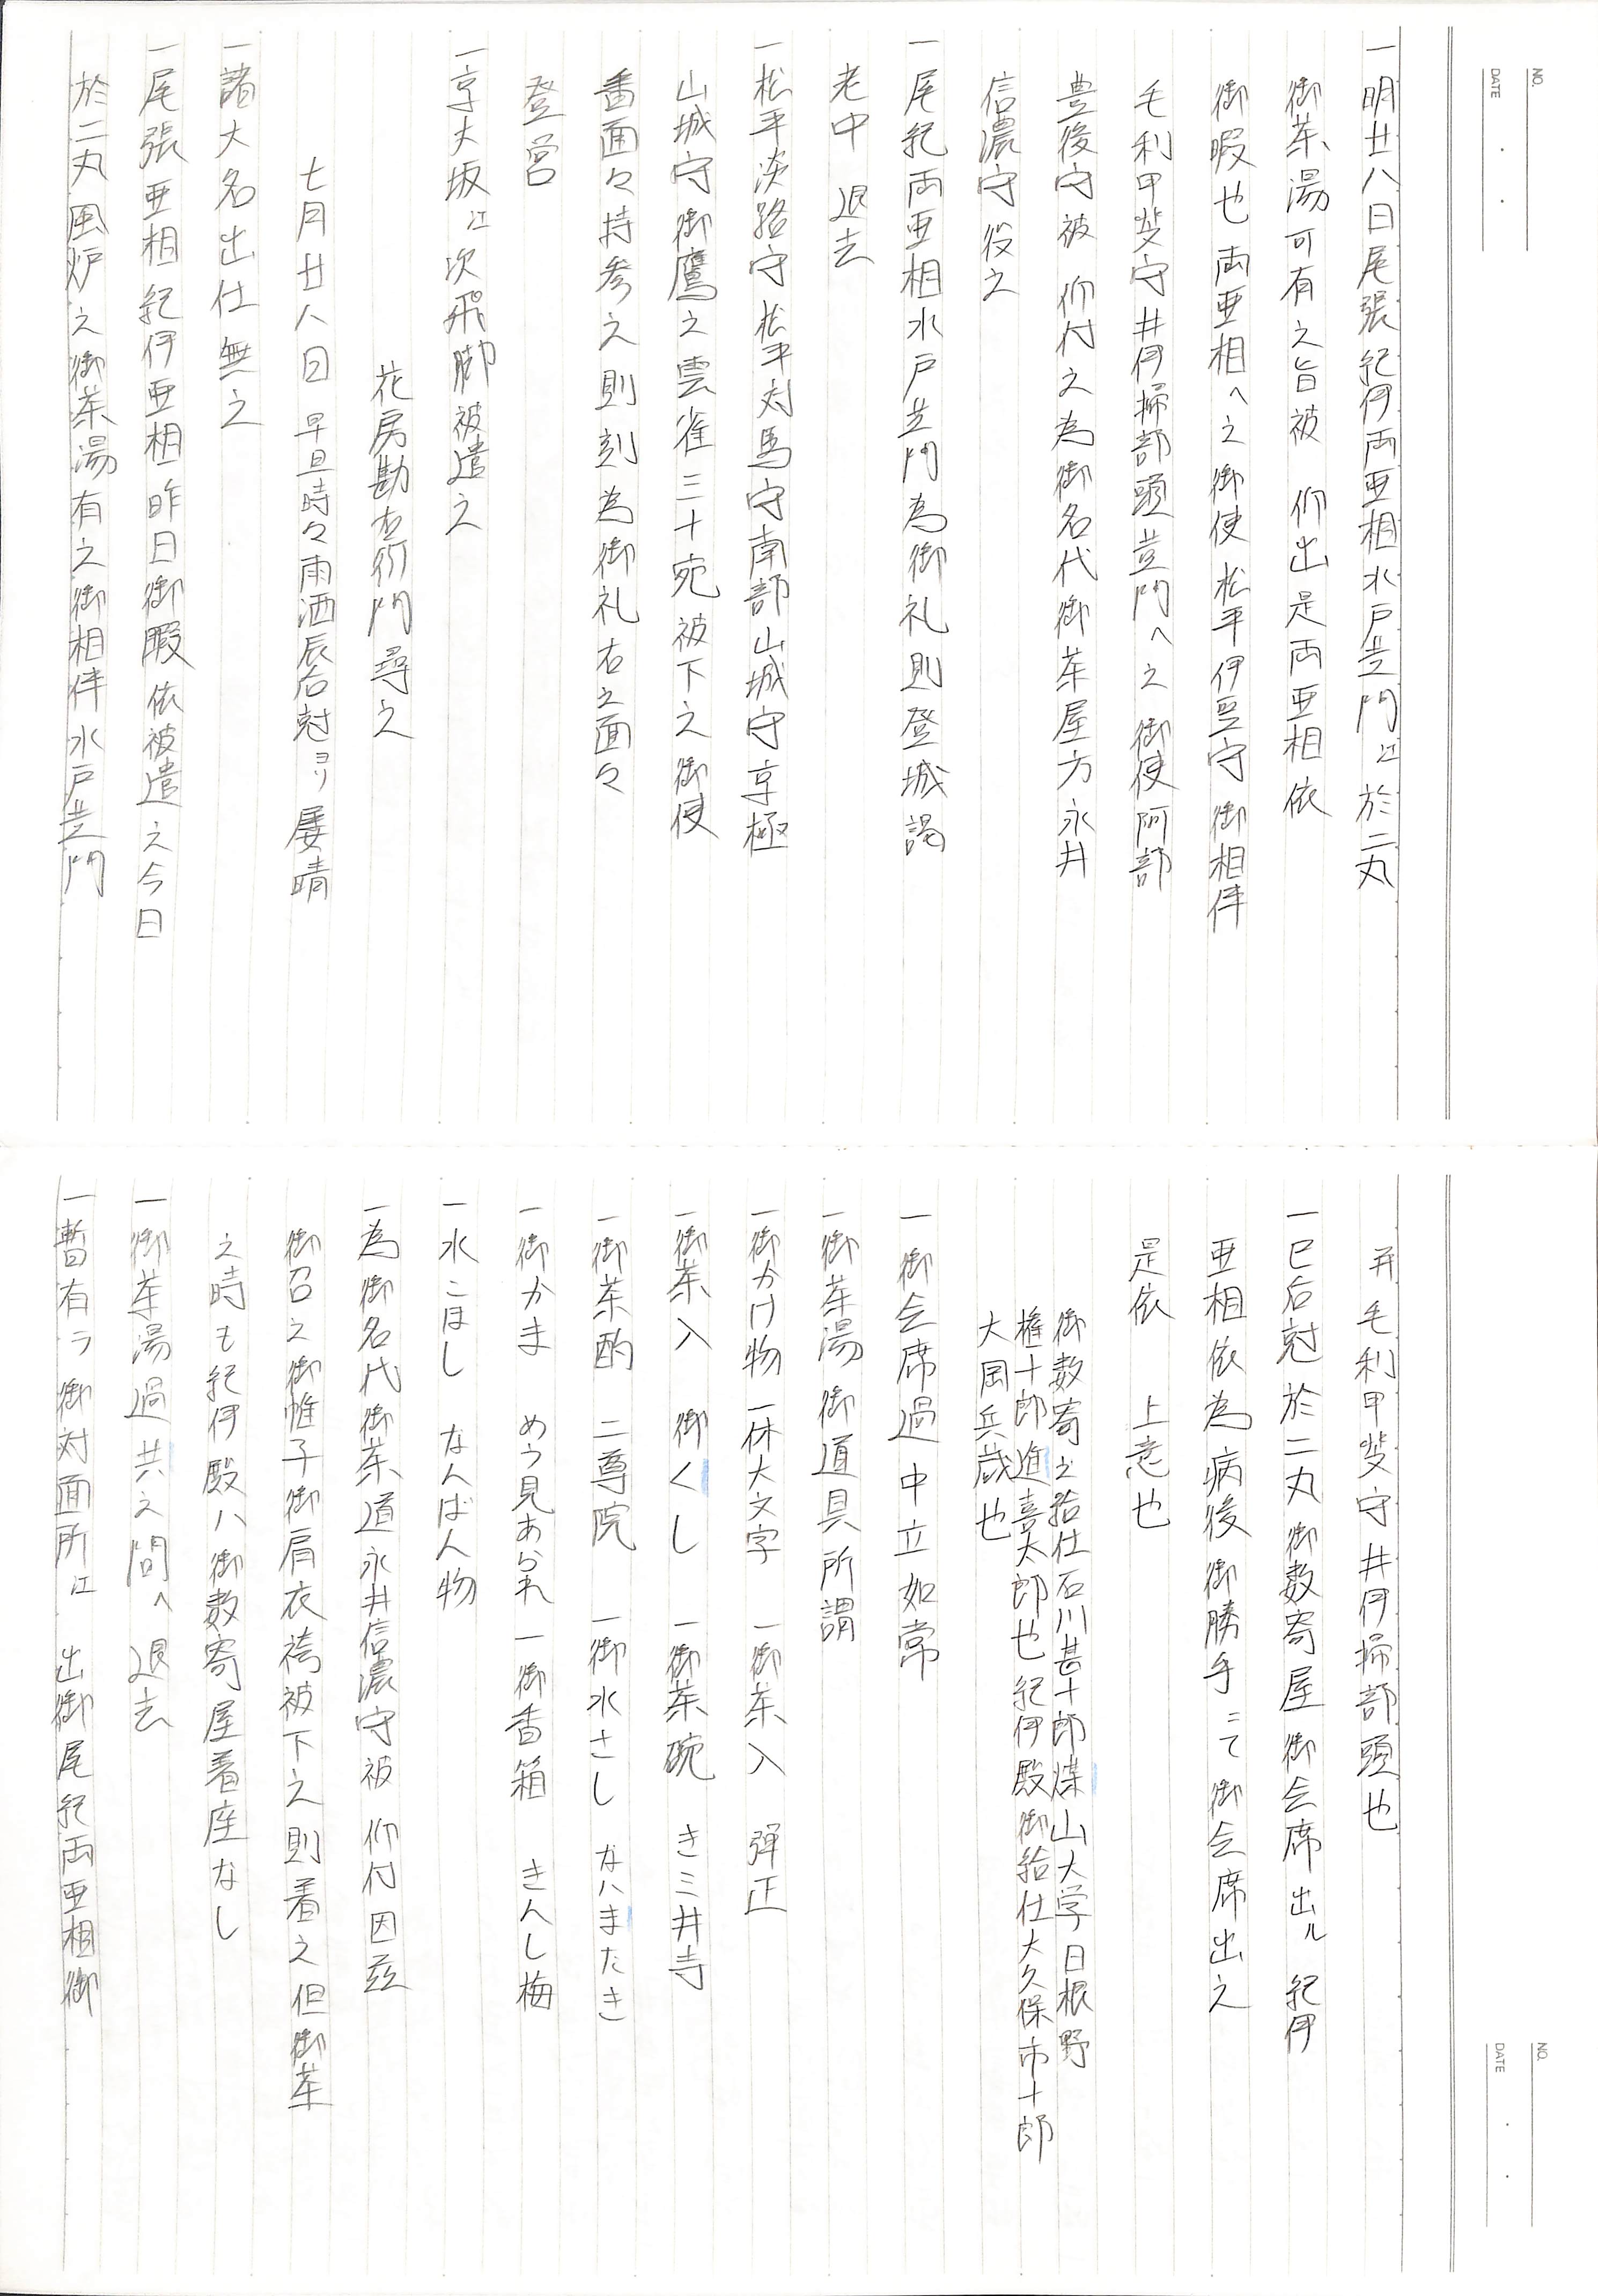 NO.
DATE
一明廿八日尾張紀伊両亜相水戸黄門江於二丸
御茶湯可有之旨被 仰出是両亜相依
御暇也両亜相へ之御使松平伊豆守御相伴
毛利甲斐守井伊掃部頭黄門へ之御使阿部
豊後守被 仰付之為御名代御茶屋方永井
信濃守役之
一尾紀両亜相水戸黄門為御礼則登城謁
老中退去
一松平淡路守松平対馬守南部山城守京極
山城守御鷹之雲雀三十宛被下之御使
番面々持参之則刻為御礼右之面々
登営
一京大坂江次飛脚被遣之
花房勘右衛門尋之
七月廿八日 早旦時々雨洒辰后尅ヨリ属晴
一諸大名出仕無之
一尾張亜相紀伊亜相昨日御暇依被遣之今日
於二丸風炉之御茶湯有之御相伴水戸黄門
NO.
DATE
并毛利甲斐守井伊掃部頭也
一巳后尅於二丸御数寄屋御会席出ル紀伊
亜相依為病後御勝手ニて御会席出之
是依 上意也
御数寄之給仕石川甚十郎煤山大学日根野
権十郎進喜太郎也紀伊殿御給仕大久保市十郎
大岡兵蔵也
一御会席過中立如常
一御茶湯御道具所謂
一御かけ物一休大文字 一御茶入 弾正
一御茶入 御くし 一御茶碗 き三井寺
一御茶酌 二尊院 一御水さし かハまたき
一御かま めう見あられ 一御香箱 きんし梅
一水こほし なんばん物
一為御名代御茶道永井信濃守被 仰付因茲
御召之御帷子御肩衣袴被下之則着之但御茶
之時も紀伊殿ハ御数寄屋着座なし
一御茶湯過共之間へ退去
一暫有ラ御対面所江 出御尾紀両亜相御